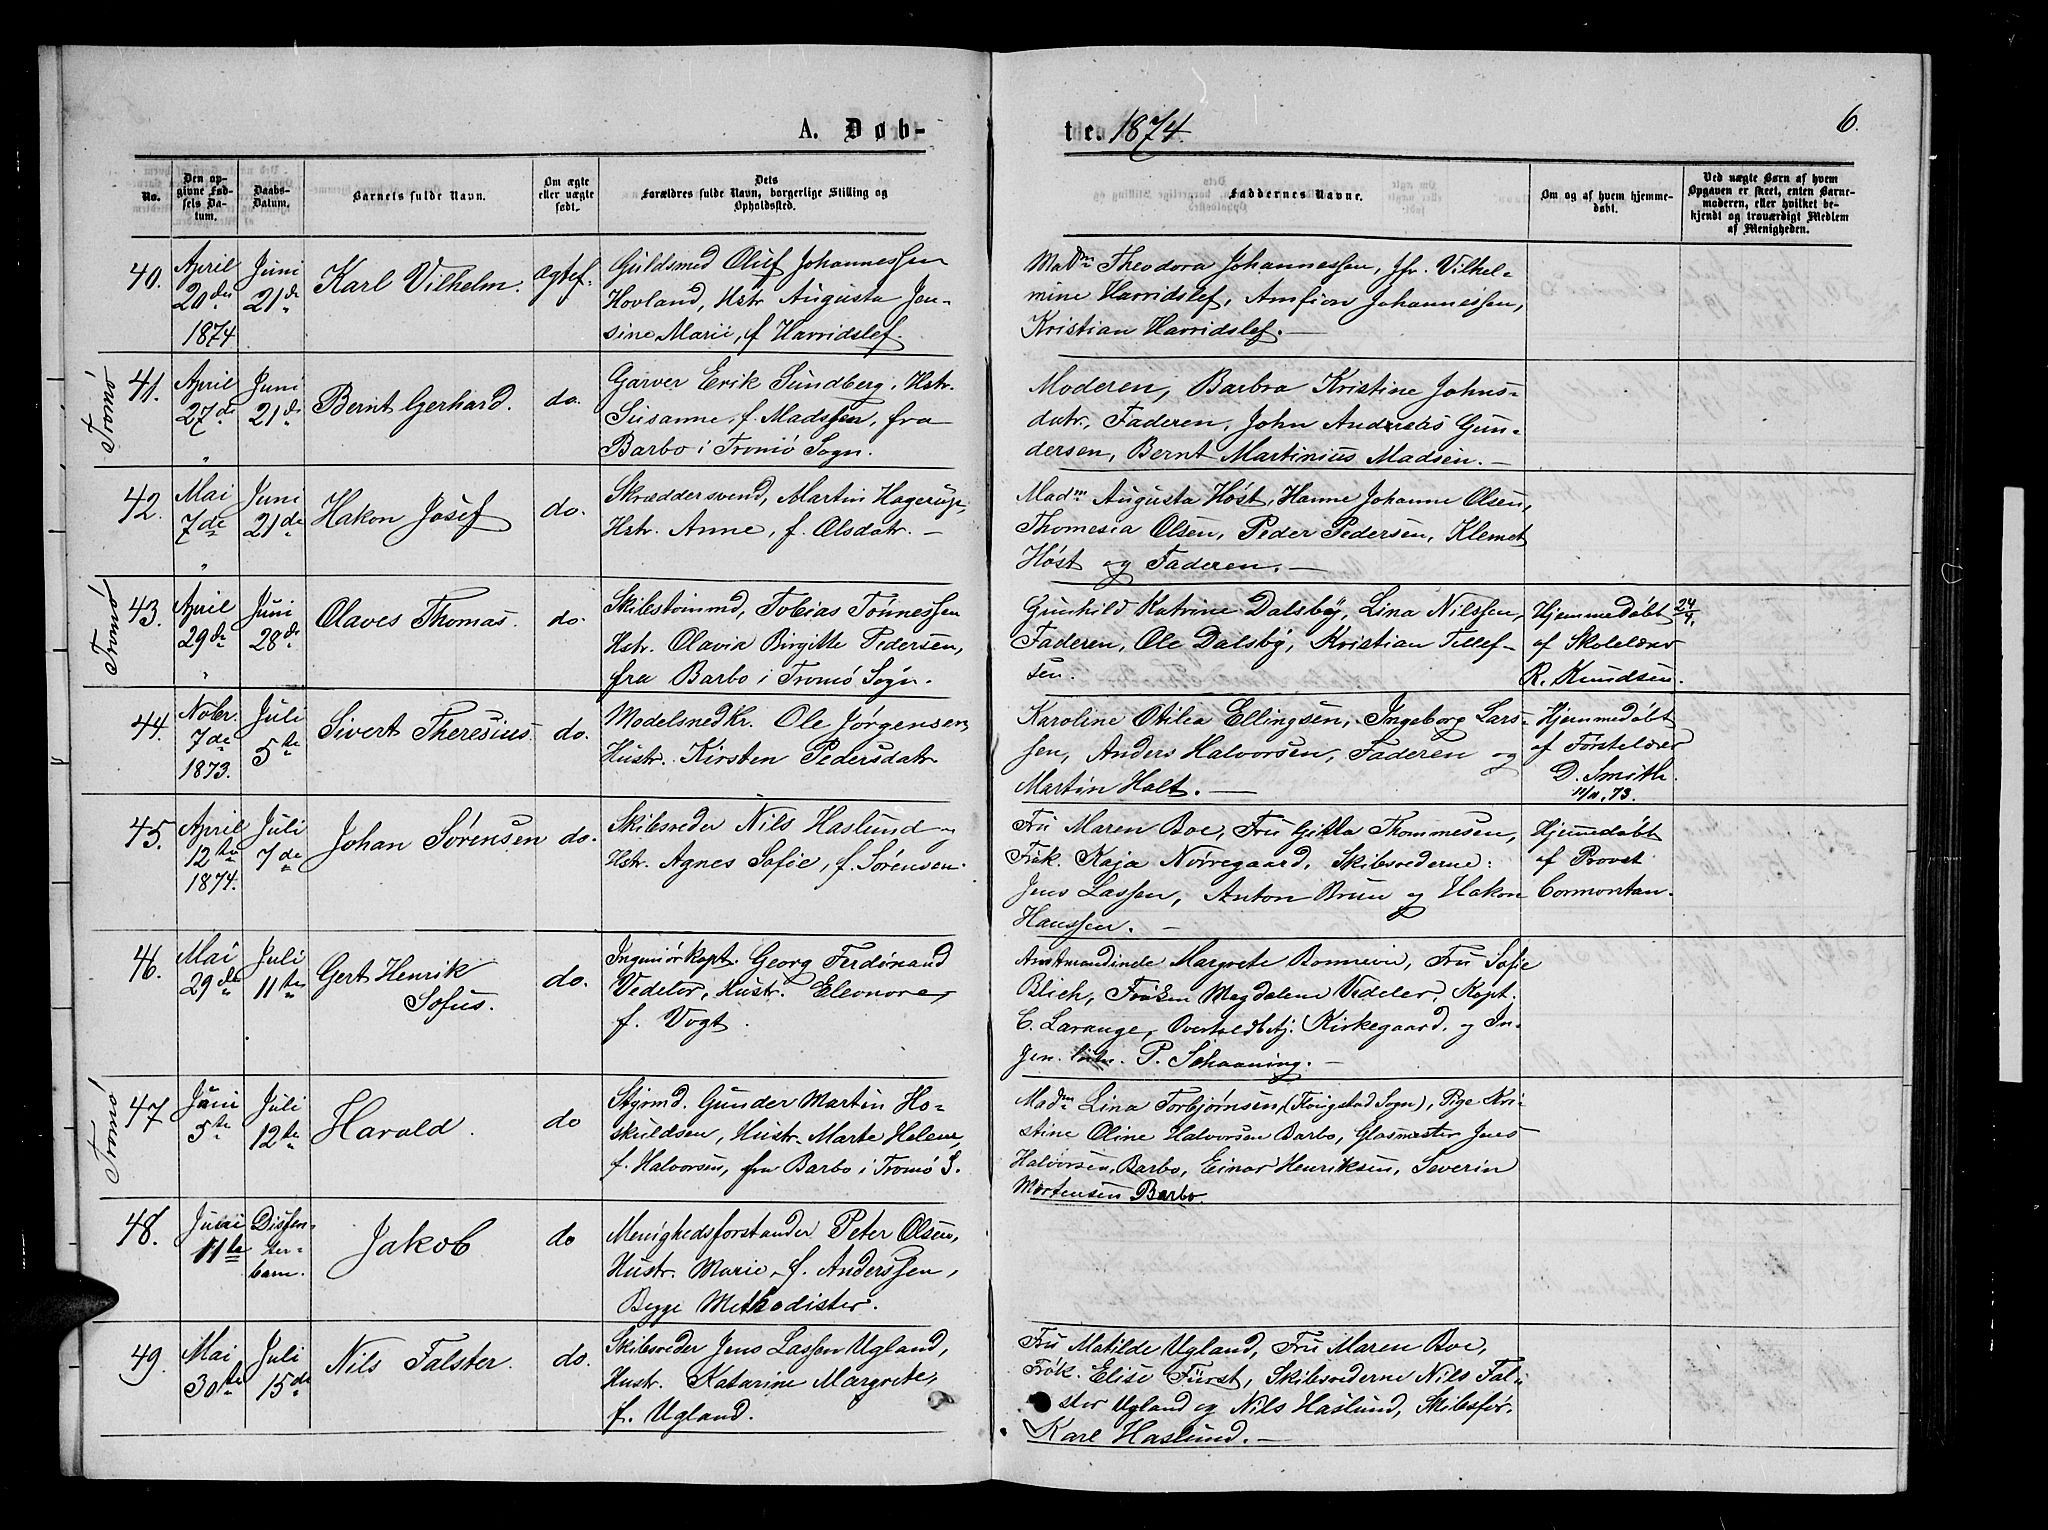 A. Døb-
te. 1874.
6.
No.
Den op-
givne Fød-
sels Da-
tum.
Daabs-
Datum.
Barnets fulde Navn.
Om ægte
eller uægte
født.
Dets
Forældres fulde Navn, borgerlige Stilling og
Opholdssted.
Faddernes Navne.
Om og af hvem hjemme-
døbt.
Ved uægte Børn af hvem
Opgaven er skeet, enten Barne-
moderen, eller hvilket be-
kjendt og troværdigt Medlem
af Menigheden.
40.
April
20de
1874
Juni
21de
Karl Vilhelm.
ægtef.
Guldsmed Oluf Johannessen
Hovland, Hstr Augusta Jen-
sine Marie, f Harridslef.
Madm Theodora Johannessen, Jfr. Vilhel-
mine Harridslef, Amfion Johannessen,
Kristian Harridslef.
Tromø
41.
April
27de
"
Juni
21de
Bernt Gerhard.
do.
Garver Erik Sundberg, Hstr.
Susanne, f. Madssen, fra
Barbo i Tromø Sogn.
Moderen, Barbra Kristine Johns-
datr., Faderen, John Andreas Gun-
dersen, Bernt Martinius Madsen.
42.
Mai
7de
"
Juni
21de
Hakon Josef
do.
Skræddersvend, Martin Hagerup,
Hstr. Anne, f. Olsdatr.
Madm Augusta Høst, Hanne Johanne Olsen,
Thomesia Olsen, Peder Pedersen, Klemet
Høst og Faderen.
Tromø
43.
April
29de
"
Juni
28de
Olaves Thomas.
do.
Skibstømmd, Tobias Tønnessen
Hstr. Olavia Birgitte Pedersen,
fra Barbo i Tromø Sogn.
Gunhild Katrine Dalsby, Lina Nilssen,
Faderen, Ole Dalsby, Kristian Tellef-
sen.
Hjemmedøbt 24/7.
af Skolelærer
R. Knudsen.
44.
Nobr.
7de
1873.
Juli
5te
Sivert Theresius
do.
Modelsnedkr. Ole Jørgensen,
Hustr. Kirsten Pedersdatr
Karoline Otilia Ellingsen, Ingeborg Lars-
sen, Anders Halvorsen, Faderen og
Martin Holt.
Hjemmedøbt
af Førstelærer
D. Smith.
11/11. 73.
45.
April
12te
1874.
Juli
7de
Johan Sørensen
do.
Skibsreder Nils Haslund og
Hstr. Agnes Sofie, f. Sørensen.
Fru Maren Boe, Fru Gitta Thommesen,
Frøk. Kaja Nørregaard, Skibsrederne:
Jens Lassen, Anton Brun og Hakon
Hanssen.
Hjemmedøbt
af Provst
Cormontan.
46.
Mai
29de
Juli
11te
Gert Henrik
Sofus.
do.
Ingeniørkapt. Georg Ferdinand
Vedeler, Hustr. Eleonore,
f. Vogt.
Amtmandinde Margrete Bonnevie, Fru Sofie
Blich, Frøken Magdalene Vedeler, Kapt.
C. Lavange, Overtoldbetj. Kirkegaard, og In-
P. Schaaning.
Tromø
47
Juni
5te
Juli
12te
Harald.
do
Styrmd. Gunder Martin Ho-
skuldsen, Hustr. Marte Helene,
f. Halvorsen, fra Barbo i Tromø S.
Madm Lina Torbjørnsen, (Flougstad Sogn), Pige Kri-
stine Oline Halvorsen Barbo, Glasmester Jens
Halvorsen, Barbo, Einar Henriksen, Severin
Mortensen Barbo.
48.
Juni
11te
Dissen-
ter-
barn.
Jakob
do
Menighedsforstander Peter Olsen,
Hustr. Marie, f. Anderssen,
Begge Methodister.
49.
Mai
30te
Juli
15de
Nils Falster.
do.
Skibsreder Jens Lassen Ugland,
Hustr. Katarine Margrete,
f. Ugland.
Fru Matilde Ugland, Fru Maren Boe,
Frøk. Elise Fürst, Skibsrederne Nils Fal-
ster Ugland og Nils Haslund, Skibsfør.
Karl Haslund.